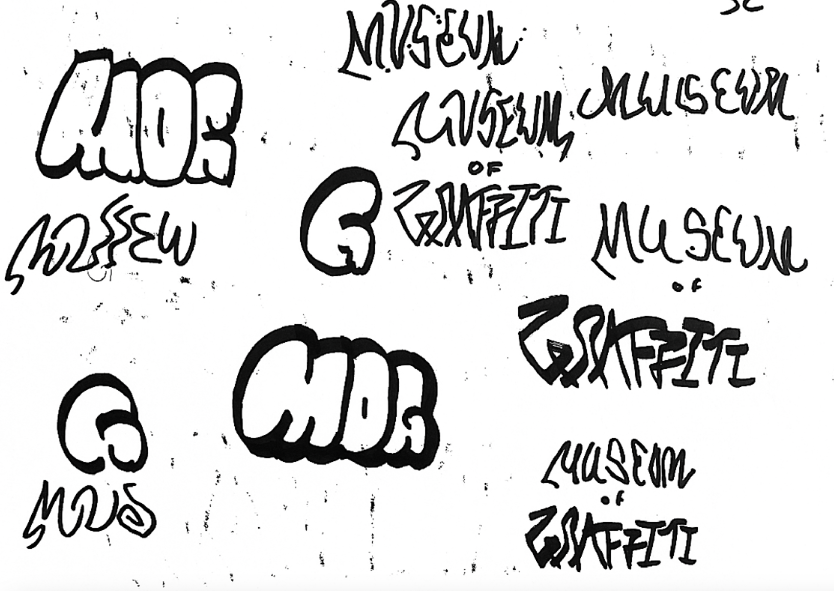 MUSEUM
MOG
MUSEUM
MUSEUM
OF
GRAFFITI
G
MUSEUM
OF
GRAFFITI
MOG
G
MUSEUM
OF
GRAFFITI